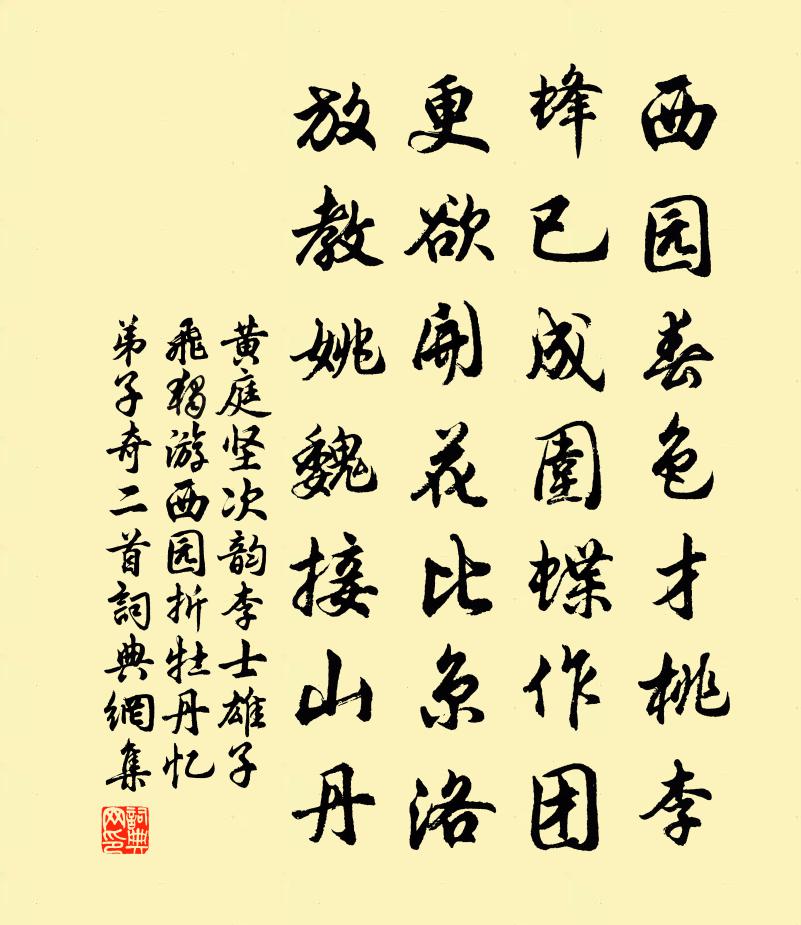 西园春色才桃李
蜂已成圍蝶作团
更欲開花比京洛
放教姚魏接山丹
黄庭坚次韵李士雄子
飛獨游西园折牡丹忆
弟子奇二首詞典網集
詞典
网印